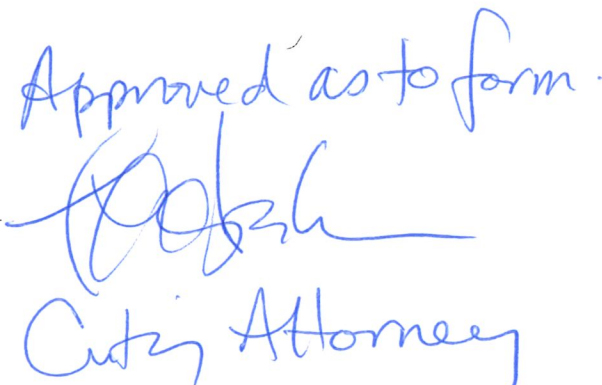 Approved as to form.
City Attorney